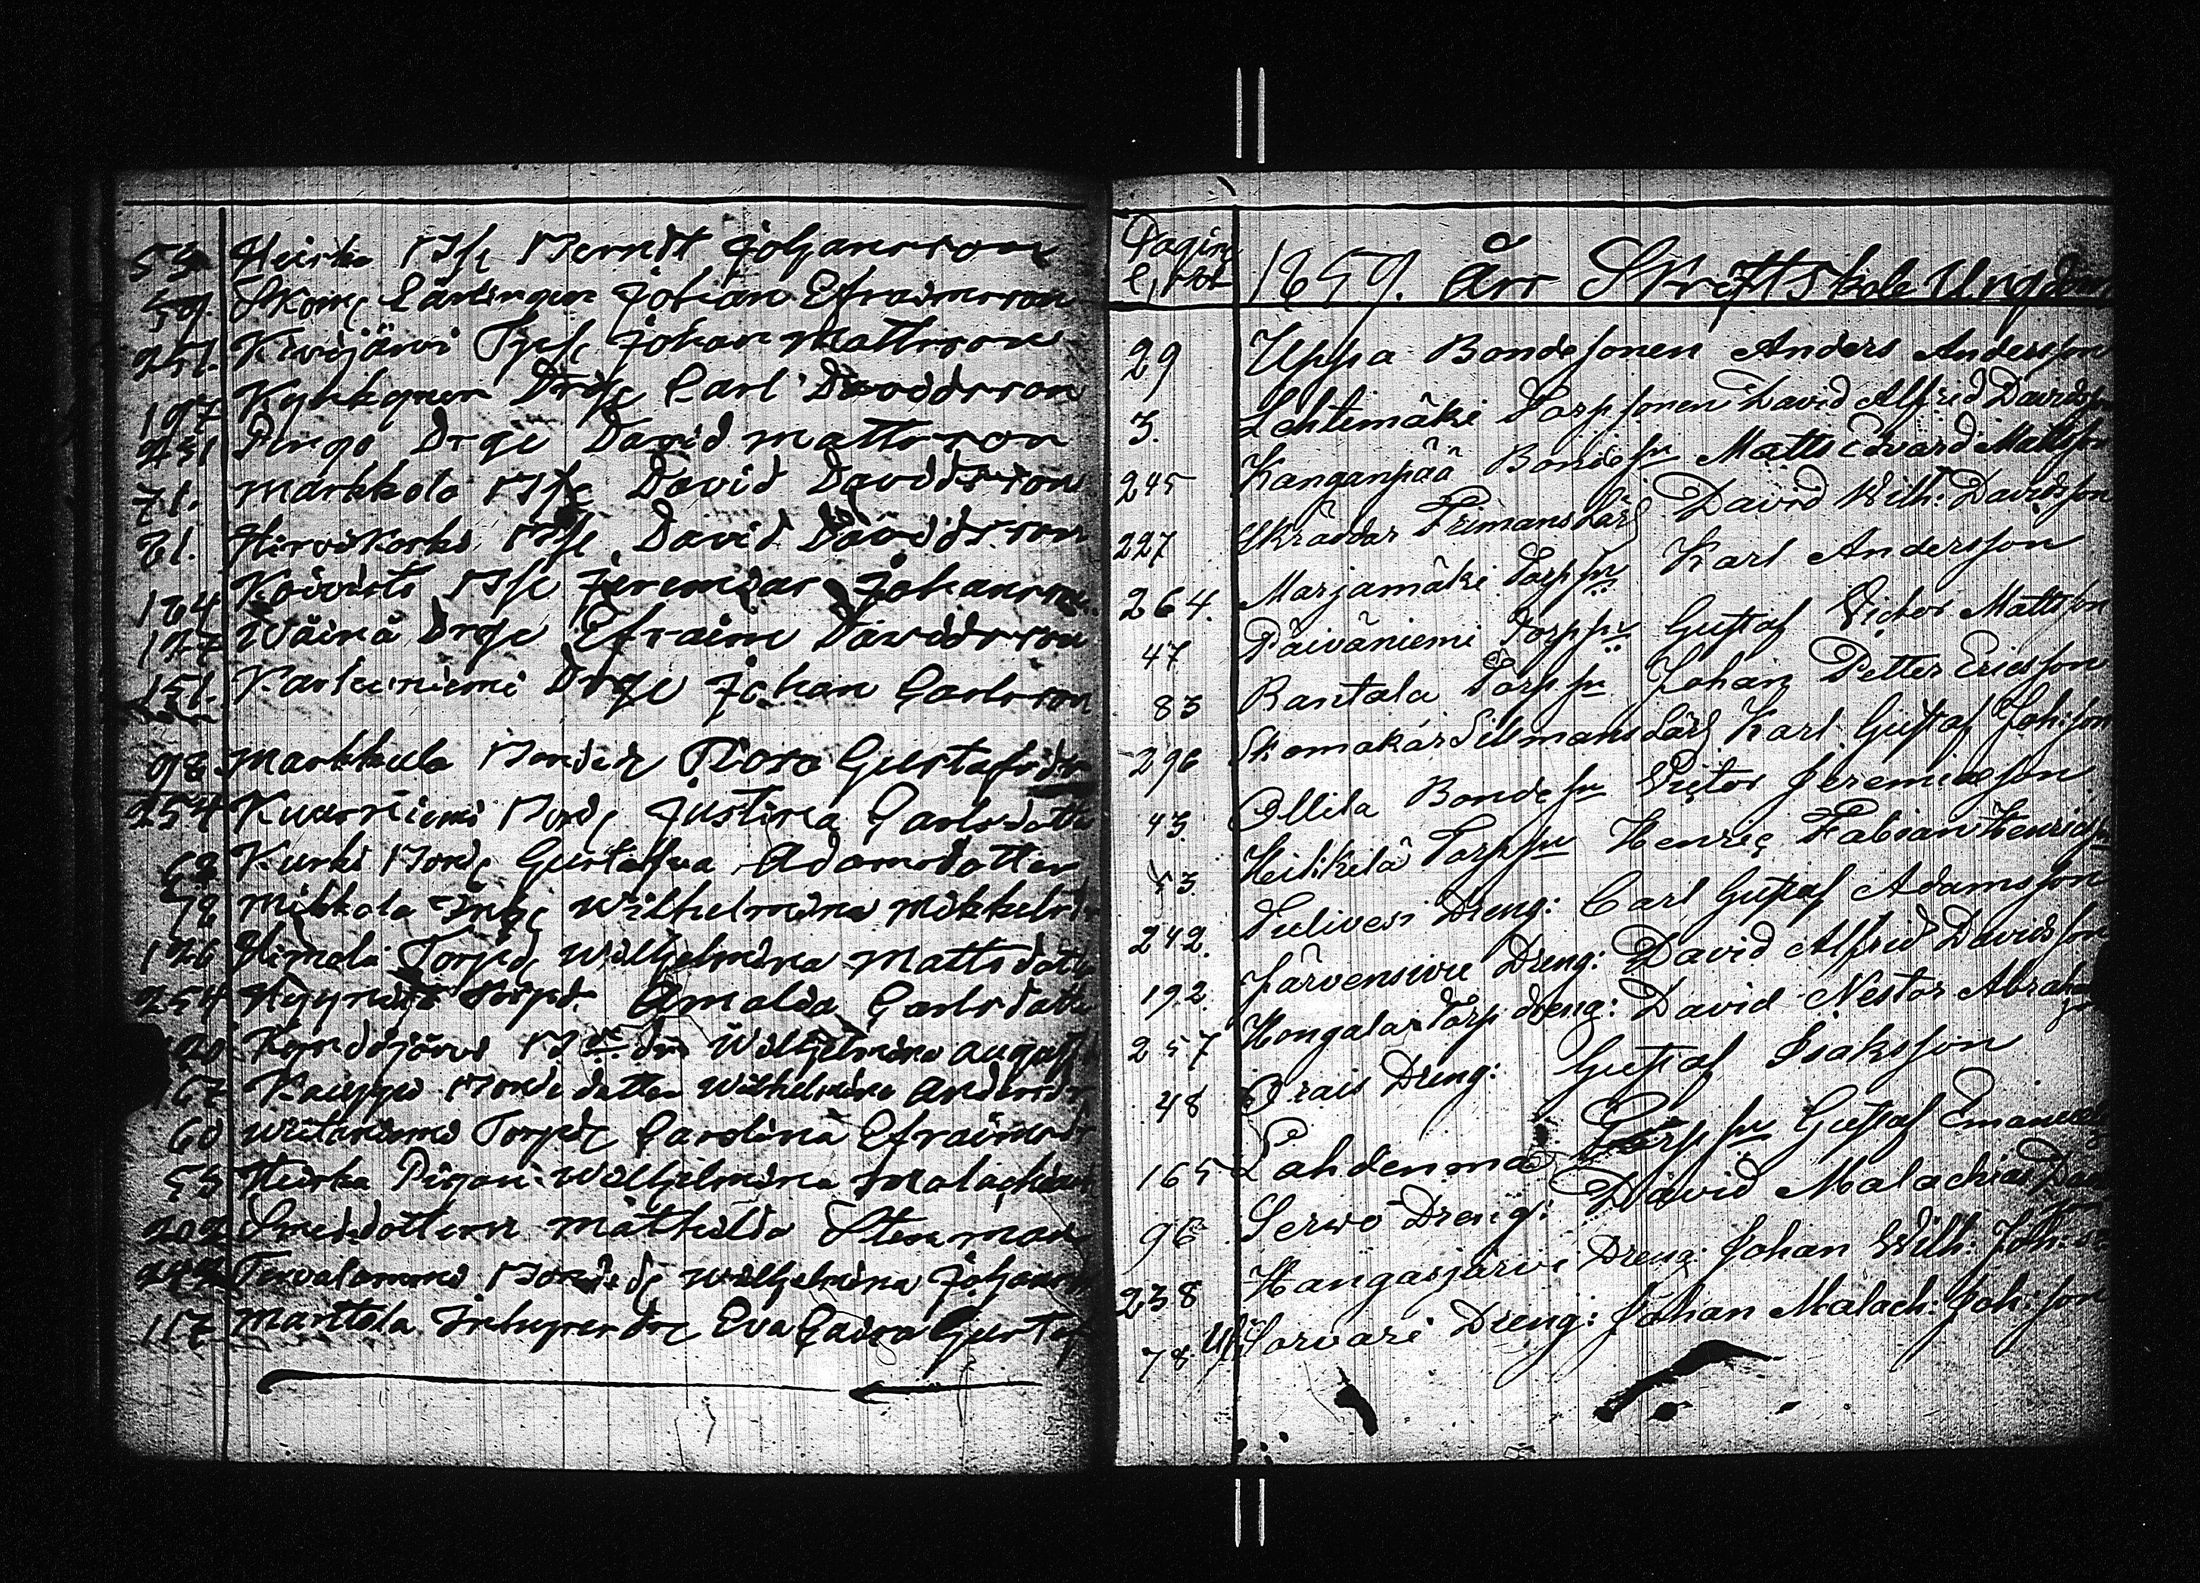 53 Heiska Bsl Berndt Johansson
59. Skom: Lärlingen Johan Efraimsson
251. Kivijärvi Tpsl Johan Mattsson
197 Drgs Carl Davidsson
231 Pingo Drge David Mattsson
71. Markkola Bsl David Davidsson
81. Hirvikoski Bsl David Davidsson
184 Koivisto Bsl Jeremias Johansson
127 Wäinä Drge Efraim Davidsson
151. Karleniemi Drge Johan Carlsson
98 Markkula Bonded Rosa Gustafsdr
254 Kuurniemi Bond Justina Carlsdotter
68 Kurki Bond Gustafva Adamsdotter
78 Mikkola Wilhelmina Mikkelsdr
126 Himela Torpd Wilhelmina Mattsdotter
254 Torpd Amalia Carlsdotter
Wilhelmina August
167 Kauppi Bondedotter Wilhelmina Andersdr
60 Torpd Carolina Efraimsdr
53 Heiska Pigan: Wilhelmina Malachias
202 Smeddottern Mathilda Stenman
242 Tervalammi Bonded Wilhelmina Johansdr
117 Marttila Inhysesdr Eva Caisa Gustaf
Pagina
1859. Års Skriftskole Ungdom
29 Uppa Bondesonen Anders Andersson
3. Lehtimäki Torpsonen David Alfred Davidsson
245 Kanganpää Bondesn Matts Edvard Mattsson
227 Skräddar Frimans Lärl David Wilh: Davidsson
264. Marjamäki Torpsn Karl Andersson
47 Päiväniemi Torpsn Gustaf Victor Mattsson
83 Rantala Torpsn Johan Petter Ericsson
296 Skomakar Sillmans Lärl Karl Gustaf Joh:son
43. Ollila Bondesn Victor Jeremiasson
53. Heikkilä Torpsn Henric Fabian Henricsson
242. Tulivesi Dreng: Carl Gustaf Adamsson
192 Järvensivu Dreng: David Alfred Davidsson
257 Hongalas Torp dreng: David Nestor Abrahamson
48 Orais Dreng: Gustaf Isaksson
165 Lahdenmaa Torpsn Gustaf Emanuels
96 Serwo Dreng: David Malachias Davidson
238 Kangasjärvi Dreng: Johan Wilh: Joh:son
78 Sorvari Dreng: Johan Malach: Joh:son